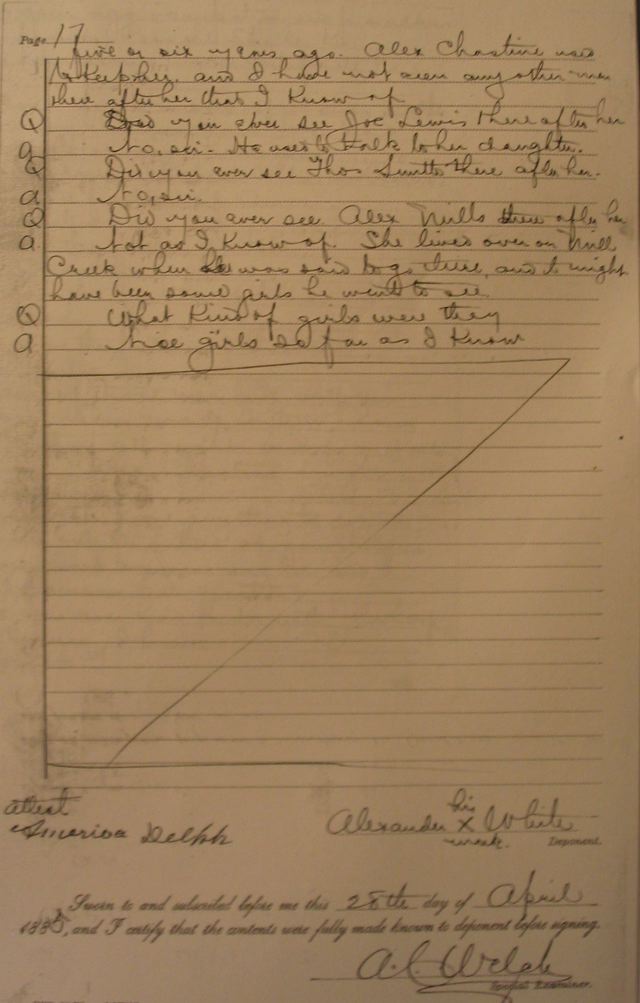 Page 17
five or six years ago. Alex Chastine used
to keep her, and I have not seen any other man
there after her that I know of
Q Did you ever see Joe Lewis there after her
a No, sir. He used to talk to her daughter.
Q Did you ever see Thos Smith there after her.
a No, sir.
Q Did you ever see Alex Mills there after her
a. Not as I know of. She lived over on Mill
Creek when he was said to go there, and it might
have been some girls he went to see.
Q What kind of girls were they
a Nice girls so far as I know
attest
America Delph
his
Alexander X White
mark. Deponent.
Sworn to and subscribed before me this 28th day of April
1885, and I certify that the contents were fully made known to deponent before signing.
A.C. Welch
Special Examiner.